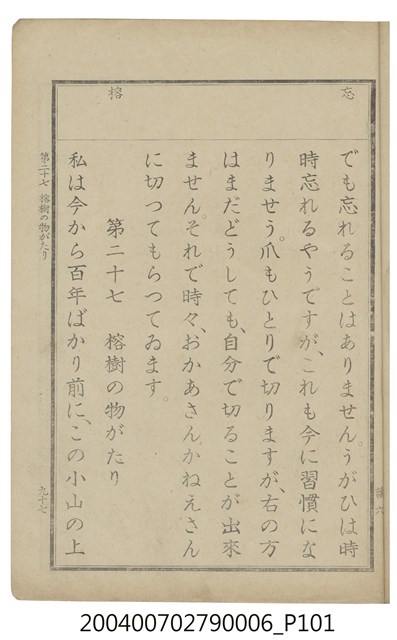 忘
榕
でも忘れることはありません。うがひは時
時忘れるやうですが、これも今に習慣にな
りませう。爪もひとりで切りますが、右の方
はまだどうしても、自分で切ることが出來
ません。それで時々、おかあさんかねえさん
に切つてもらつてゐます。
第二十七　榕樹の物がたり
私は今から百年ばかり前に、この小山の上
第二十七　榕樹の物がたり
九十七
200400702790006_P101